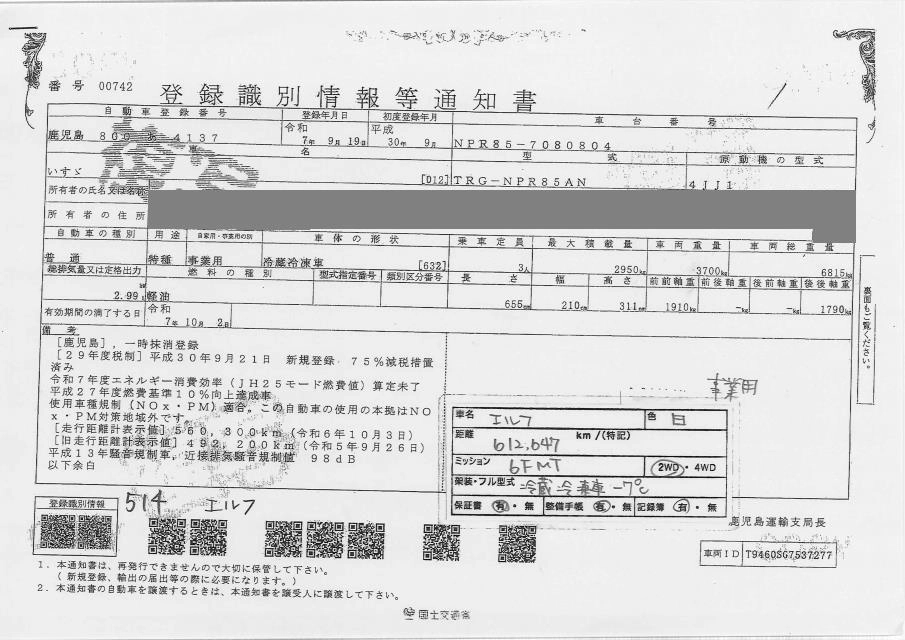 番号 00742
登録識別情報等通知書
自動車登録番号 登録年月日 初度登録年月 車台番号
鹿児島 800 4137 令和 7年 9月 19日 平成 30年 9月 NPR85-7080804
車名 型式 原動機の型式
いすゞ [D12] TRG-NPR85AN 4JJ1
所有者の氏名又は名称
所有者の住所
自動車の種別 用途 自家用・事業用の別 車体の形状 乗車定員 最大積載量 車両重量 車両総重量
普通 特種 事業用 冷蔵冷凍車 [632] 3人 2950kg 3700kg 6815kg
総排気量又は定格出力 燃料の種別 型式指定番号 類別区分番号 長さ 幅 高さ 前前軸重 前後軸重 後前軸重 後後軸重
2.99 軽油 655cm 210cm 311cm 1910kg -kg -kg 1790kg
有効期間の満了する日 令和 7年 10月 2日
裏面もご覧ください。
備考
[鹿児島],一時抹消登録
[29年度税制]平成30年9月21日 新規登録 75%減税措置
済み
令和7年度エネルギー消費効率(JH25モード燃費値)算定未了
平成27年度燃費基準10%向上達成車
使用車種規制(NOx・PM)適合。この自動車の使用の本拠はNO
x・PM対策地域外です。
[走行距離計表示値]560,300km(令和6年10月3日)
[旧走行距離計表示値]492,200km(令和5年9月26日)
平成13年騒音規制車,近接排気騒音規制値 98dB
以下余白
事業用
車名 エルフ 色 白
距離 612,647 km/(特記)
ミッション 6FMT 2WD・4WD
架装・フル型式 冷蔵冷凍車 -7℃
保証書 有・無 整備手帳 有・無 記録簿 有・無
登録識別情報 514 エルフ
鹿児島運輸支局長
車両ID T9460SG7537277
1.本通知書は、再発行できませんので大切に保管して下さい。
(新規登録、輸出の届出等の際に必要になります。)
2.本通知書の自動車を譲渡するときは、本通知書を譲受人に譲渡して下さい。
国土交通省